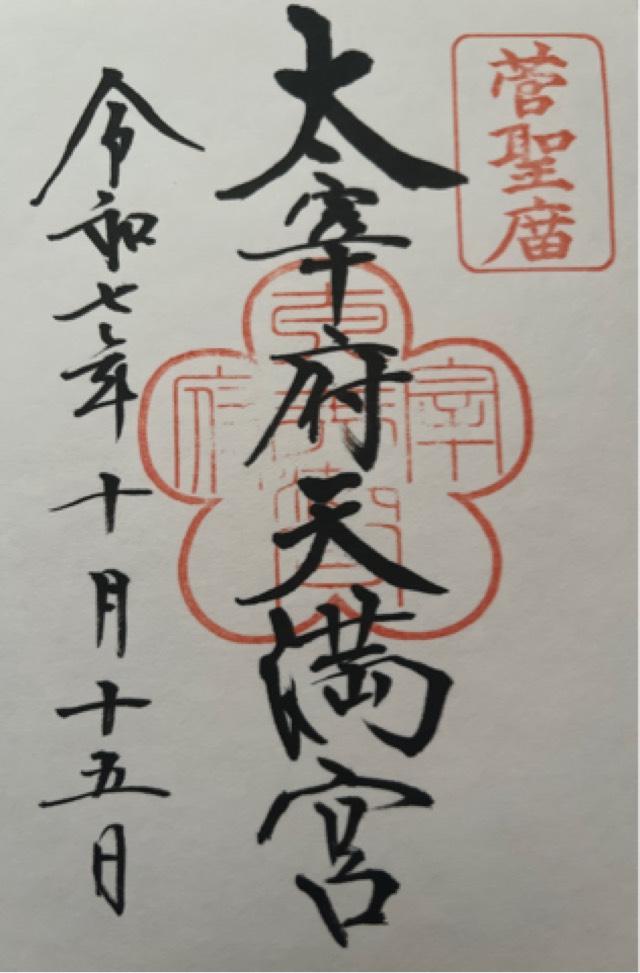 菅聖庿
太宰府天満宮
令和七年十月十五日